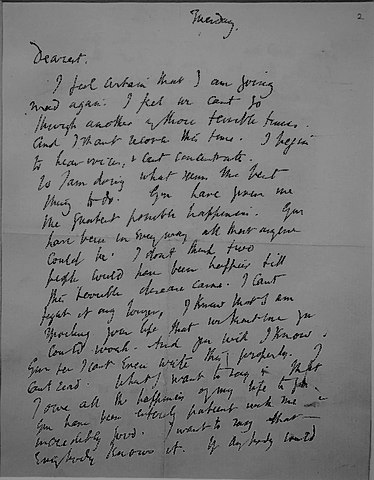 Tuesday.
2
Dearest,
I feel certain that I am going
mad again. I feel we cant go
through another of those terrible times.
And I shant recover this time. I begin
to hear voices, & cant concentrate.
So I am doing what seems the best
thing to do. You have given me
the greatest possible happiness. You
have been in every way all that anyone
could be. I dont think two
people could have been happier till
this terrible disease came. I cant
fight it any longer, I know that I am
spoiling your life that without me you
could work. And you will I know.
You see I cant even write this properly. I
cant read. What I want to say is that
I owe all the happiness of my life to you.
You have been entirely patient with me &
incredibly good. I want to say that –
everybody knows it. If anybody could